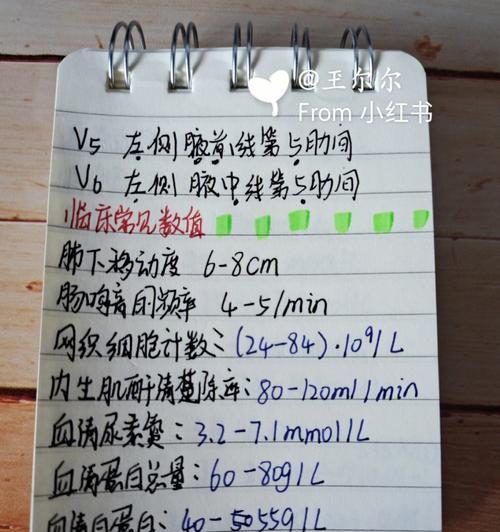 @王尔尔
From 小红书
V5 左侧腋前线第5肋间
V6 左侧腋中线第5肋间
临床常见数值
肺下移动度 6-8cm
肠鸣音的频率 4-5/min
网织细胞计数:(24-84)·10⁹/L
内生肌酐清除率:80-120ml/min
血清尿素氮:3.2-7.1mmol/L
血清蛋白总量:60-80g/L
血清白蛋白:40-55g/L